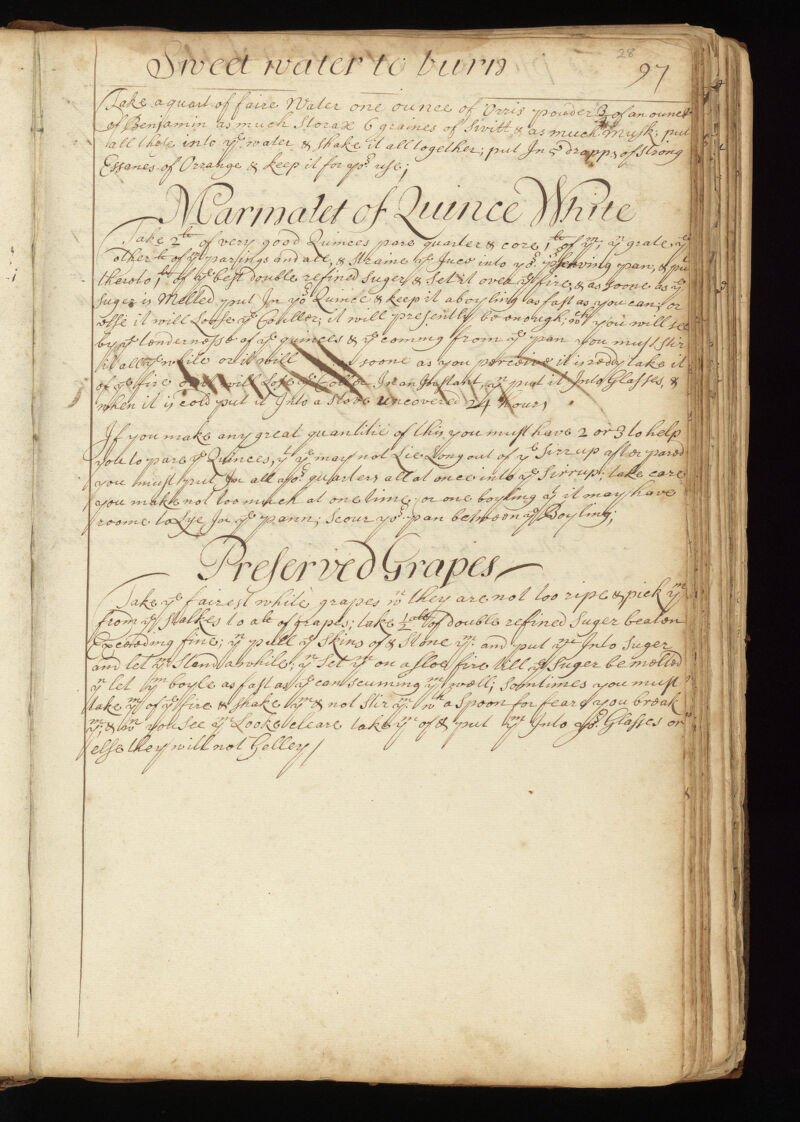 28
Sweet water to burn
97
Take a quart of faire Water one ounce of Orris pouder 3/4 of an ounce
of Benjamin as much Storax 6 graines of Sivitt & as much Musk; put
all these into ye water & shake it all together; put In 5 drapps of strong
Essanes of Orrange & keep it for yor use;
Marmalet of Quince White
Take 2lb of very good Quinces pare quarter & core 1lb of ym; yn grate ye
other lb of ym parings and all, & straine ye Juce into yor pserving pan, & put
thereto 1lb of ye best double refined Suger & Set it over ye fire, & as soone as ye
Suger is Melted put In yor Quince & keep it a boyling as fast as you can; or
else it will Loose ye Coullor; it will presently be enough; wch you will see
by ye tenderness of ye quinces & ye coming from ye pan you must stir
it all ye while or it will soone as you perceive it is redy take it
of ye fire or it will Lose ye Collor In an Instant, yn put it Into Glasses, &
when it is cold put it Into a stove uncovered 24 hours
If you make any great quantitie of this you must have 2 or 3 to help
you to pare ye Quinces, yt ye may not Lie Long out of ye Sirrup after pared
you must put In all yor quarters all at once into ye Sirrup; take care
you make not too much at one time, or one boyling yt it may have
roome to Lye In ye pann; Scour yor pan between ye Boyling;
Preserved Grapes
Take ye fairest white grapes wn they are not too ripe & pick ym
from ye Stalkes to a lb of grapes; take 1/2 alb of double refined Suger beaten
Exceeding fine; yn pull ye skins of & Stone ym: and put ym Into Suger
and let ym stand awhile, yn Set ym on a sloe fire till ye Suger be melted
yn let ym boyle as fast as ye can scuming ym well; Somtimes you must
take ym of ye fire & shake ym & not Stir ym wth a Spoon for feare you break
ym, & wn you see ym Looke cleare take ym of & put ym Into yor Glasses or
else they will not Gelley